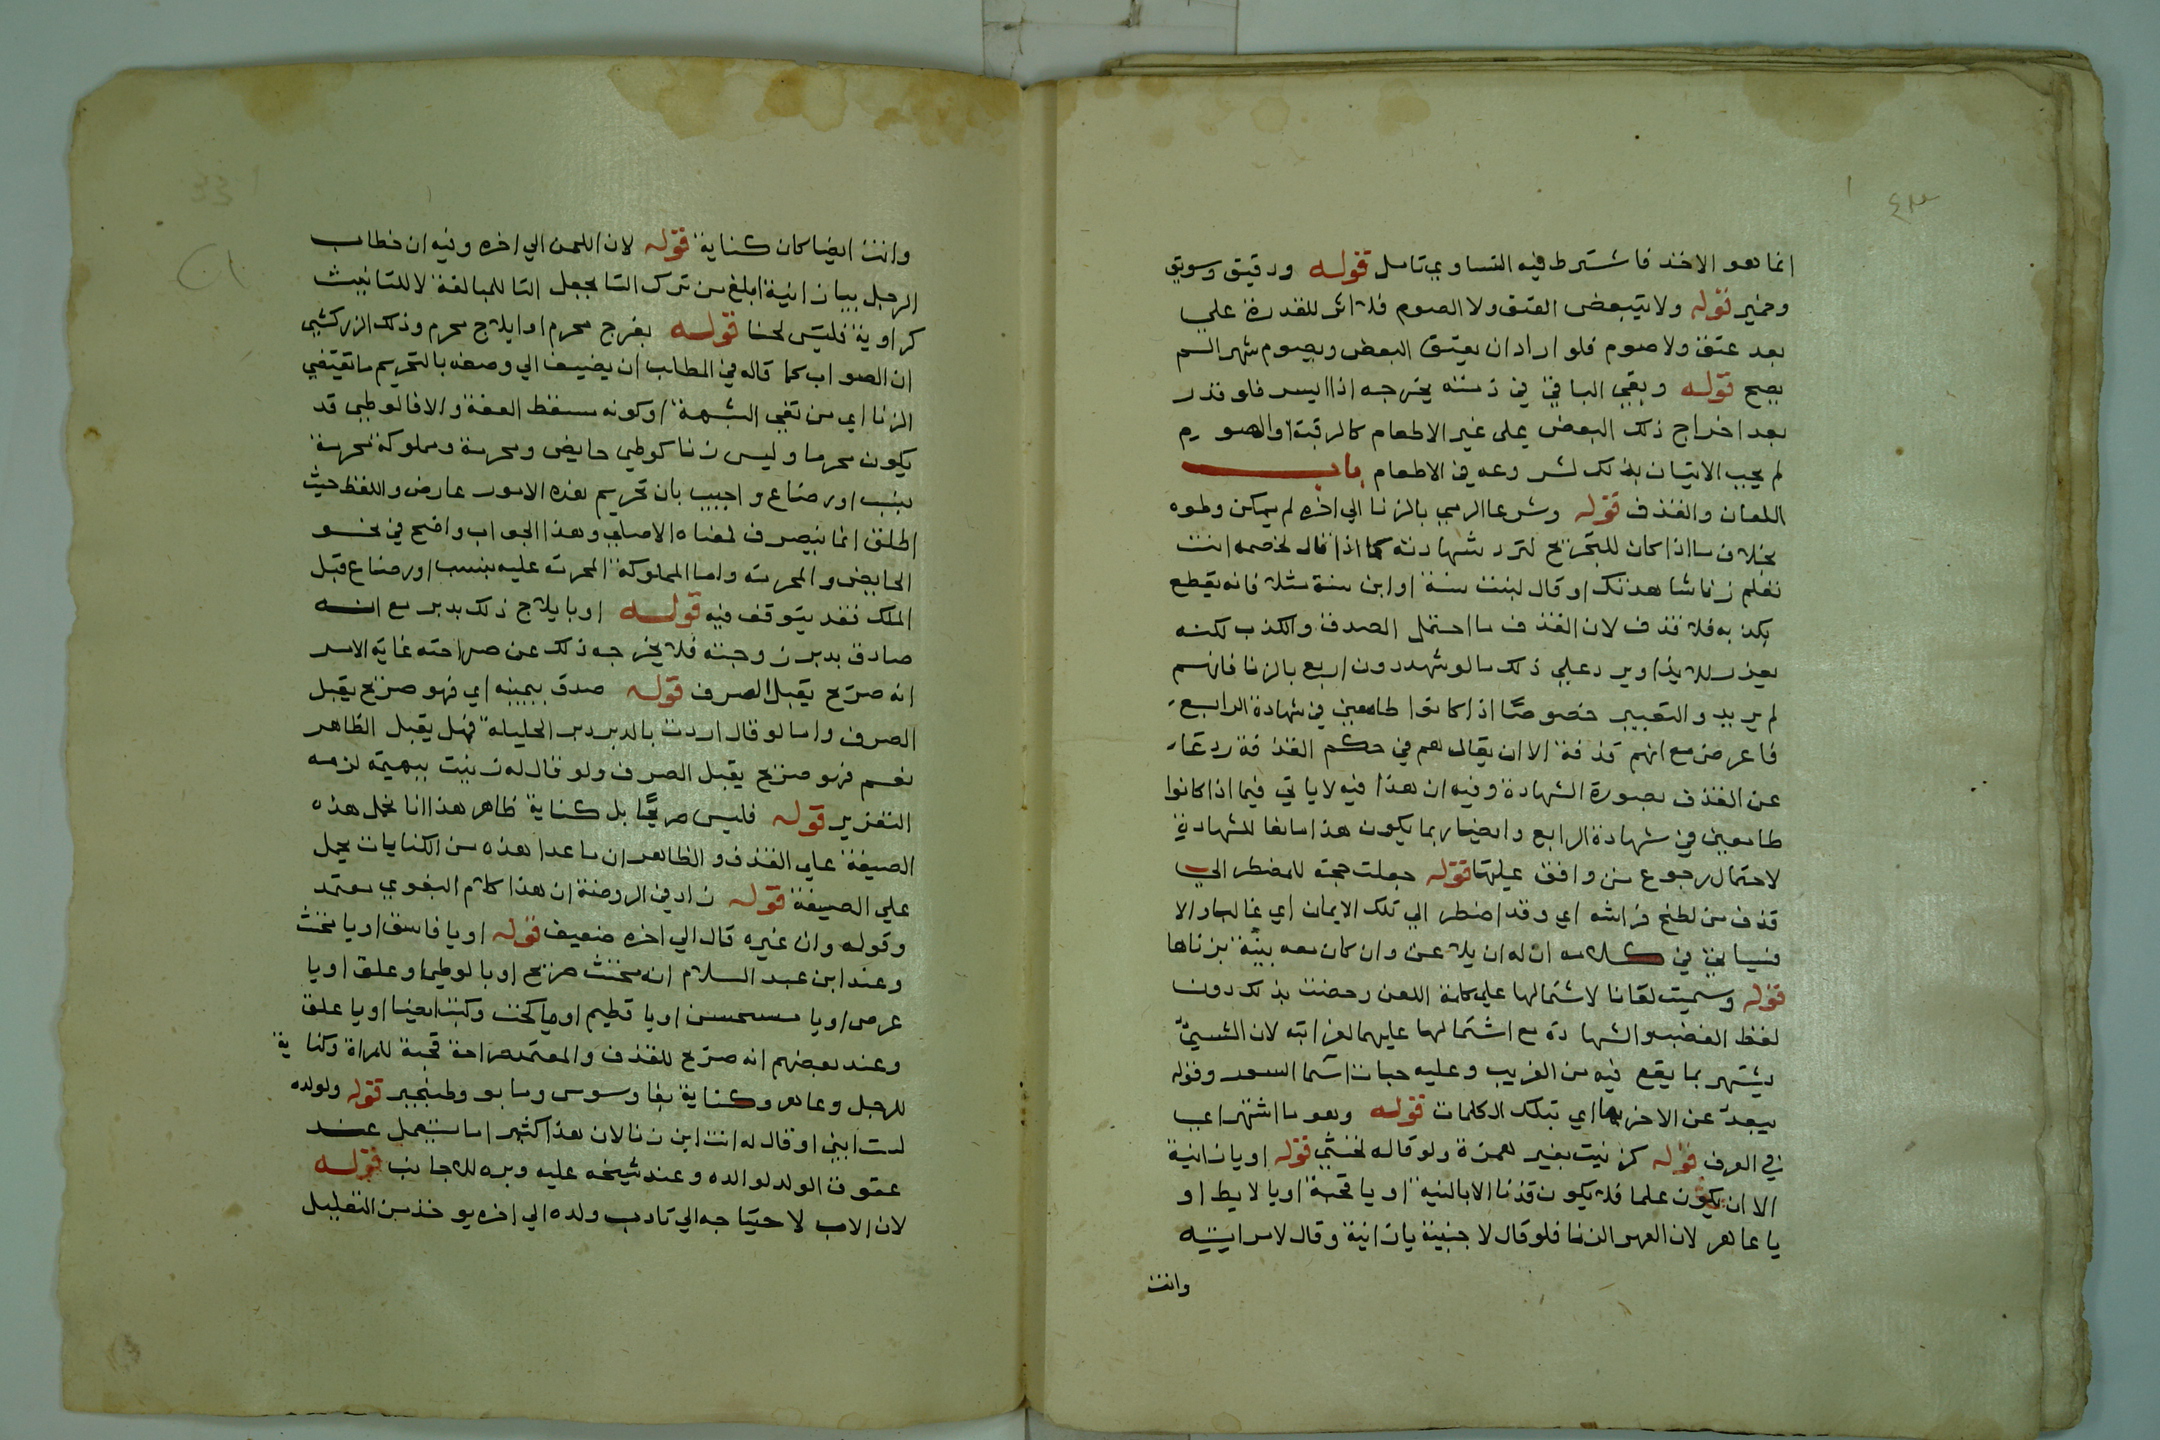 انما هو الاخذ فاشترط فيه التساوي تامل قوله ودقيق وسويق
وخمير قوله ولا يتبعض العتق ولا الصوم فلا اثر للقدرة علي
بعد عتق ولا صوم فلو اراد ان يعتق البعض ويصوم شهرا لم
يصح قوله وبقي الباقي في ذمته يخرجه اذا ايسر فلو قدر
بعد اخراج ذلك البعض علي غير الاطعام كالرقبة او الصوم
لم يجب الاتيان بذلك لشروعه في الاطعام باب
اللعان والقذف قوله وشرعا الرمي بالزنا الي اخره لم يمكن وطوه
بخلاف ما اذا كان للتجريح لترد شهادته كما اذا قال لخصمه انت
تعلم زنا شاهدتك او قال لبنت سنة او ابن سنة مثلا فانه يقطع
بكذبه فلا قذف لان القذف ما احتمل الصدق والكذب لكنه
يعزر للايذا ويرد علي ذلك ما لو شهد دون اربع بالزنا فانهم
لم يريدوا التعيير خصوصا اذا كانوا طامعين في شهادة الرابع
فاعرض مع انهم قذفة الا ان يقال هم في حكم القذفة ردعا
عن القذف بصورة الشهادة وفيه ان هذا فيه لا ياتي فيما اذا كانوا
طامعين في شهادة الرابع وايضا ربما يكون هذا مانعا للشهادة
لاحتمال رجوع من وافق عليها قوله جعلت حجة للمضطر الي
قذف من لطخ فراشه اي وقد اضطر الي تلك الايمان اي غالبا والا
فسياتي في كلامه ان له ان يلاعن وان كان معه بينة بزناها
قوله وسميت لعانا لاشتمالها علي كلمة اللعن وخصت بذلك دون
لفظ الغضب والشهادة مع اشتمالها عليهما لغرابته لان الشيئ
يشتهر بما يقع فيه من الغريب وعليه جات اسما السور وقوله
يبعد عن الاخر بها اي بتلك الكلمات قوله وهو ما اشتهر اي
في العرف قوله كزنيت بغير همزة ولو قاله لخنثي قوله او يا زانية
الا ان يكون علما فلا يكون قذفا الا بالنية او يا قحبة او يا لايط او
يا عاهر لان العهر الزنا فلو قال لاجنبية يا زانية وقال لامراتيه
وانت
وانت ايضا كان كناية قوله لان اللحن الي اخره وفيه ان خطاب
الرجل بيا زانية ابلغ من ترك التا بجعل التا للمبالغة لا للتانيث
كراوية فليس لحنا قوله بفرج محرم او ايلاج محرم وذلك الزركشي
ان الصواب كما قاله في المطلب ان يضيف الي وصفه بالتحريم ما تقتضي
الزنا اي من نفي الشبهة او كونه مسقط العفة والا فالوطي قد
يكون محرما وليس زنا كوطي حايض ومحرمة ومملوكة محرمة
بنسب او رضاع واجيب بان تحريم هذه الامور عارض واللفظ حيث
اطلق انما ينصرف لمعناه الاصلي وهذا الجواب واضح في نحو
الحايض والمحرمة واما المملوكة المحرمة عليه بنسب او رضاع قبل
الملك فقد يتوقف فيه قوله او بايلاج ذلك بدبر مع انه
صادق بدبر زوجته فلا يخرجه ذلك عن صراحته غاية الامر
انه صريح يقبل الصرف قوله صدق بيمينه اي فهو صريح يقبل
الصرف واما لو قال اردت بالدبر دبر الحليلة فهل يقبل الظاهر
نعم فهو صريح يقبل الصرف ولو قال له زنيت ببهيمة لزمه
التعزير قوله فليس صريحا بل كناية ظاهر هذا انا نحمل هذه
الصيغة علي القذف والظاهر ان ما عدا هذه من الكنايات يحمل
علي الصيغة قوله زاد في الروضة ان هذا كلام البغوي معتمد
وقوله وان غيره قال الي اخره ضعيف قوله او يا فاسق او يا مخنث
وعند ابن عبد السلام انه مخنث صريح او يا لوطي او علق او يا
عرص او يا او يا قطيم او يا وكنت ايضا او يا علق
وعند بعضهم انه صريح للقذف والمعتمد صراحة قحبة للمراة وكناية
للرجل وعاهر وكناية بغا وسوس ومابو وطنجير قوله ولولده
لست ابني او قال له انت ابن زنا لان هذا كثير اما يستعمل عند
عقوق الولد لوالده وعند شيخه عليه وبره للاجانب قوله
لان الاب لاحتياجه الي تاديب ولده الي اخره يوخذ من التعليل